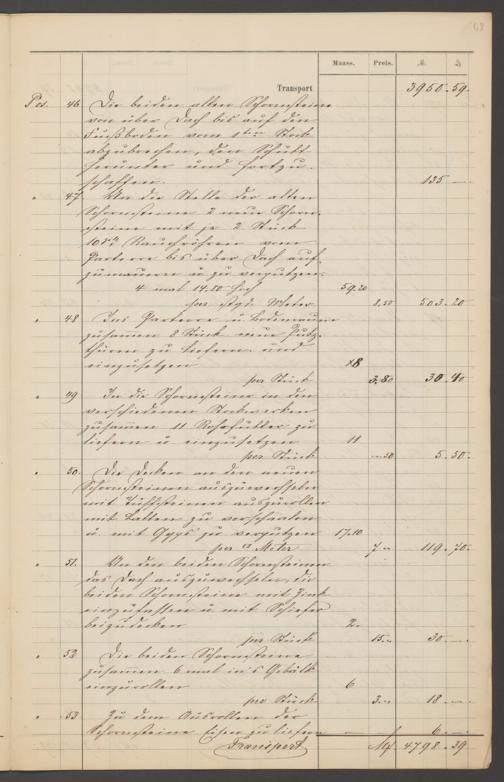 68
Maass. Preis. M. ₰
Transport 3950.59.
Pos. 46. Die beiden alten Schornsteine
von über Dach bis auf den
Fußboden vom 1ten Stock
abzubrechen, den Schutt
herunter und fortzu-
schaffen. 135 —
" 47. An die Stelle der alten
Schornsteine 2 neue Schorn-
steine mit je 2 Stück
Rauchröhren vom
Parterre bis über Dach auf-
zumauern u zu verputzen.
4 mal 14.80 hoch 59.20
per stgd. Meter 8,50 503.20
" 48. Ins Parterre u. Bodenraum
zusammen 8 Stück neue Putz-
thüren zu liefern und
einzusetzen 8
per Stück 3,80 30.40
" 49. In die Schornsteine in den
verschiedenen Stockwerken
zusammen 11 Rohrfutter zu
liefern u einzusetzen 11
per Stück —.50 5.50.
" 50. Die Decken an den neuen
Schornsteinen auszuwechseln
mit Tuffsteinen auszurollen
mit Latten zu verschaalen
u. mit Gyps zu verputzen 17.10
per □ Meter 7 — 119.70.
" 51. An den beiden Schornsteinen
das Dach auszuwechseln, die
beiden Schornsteine mit Zink
einzufassen u. mit Schiefer
beizudecken 2.
per Stück 15.— 30 —
" 52. Die beiden Schornsteine
zusammen 6 mal in's Gebälk
einzurollen 6
per Stück 3.— 18 —
" 53. Zu dem Ausrollen der
Schornsteine Eisen zu liefern — 6 —
Transport M 4798.39